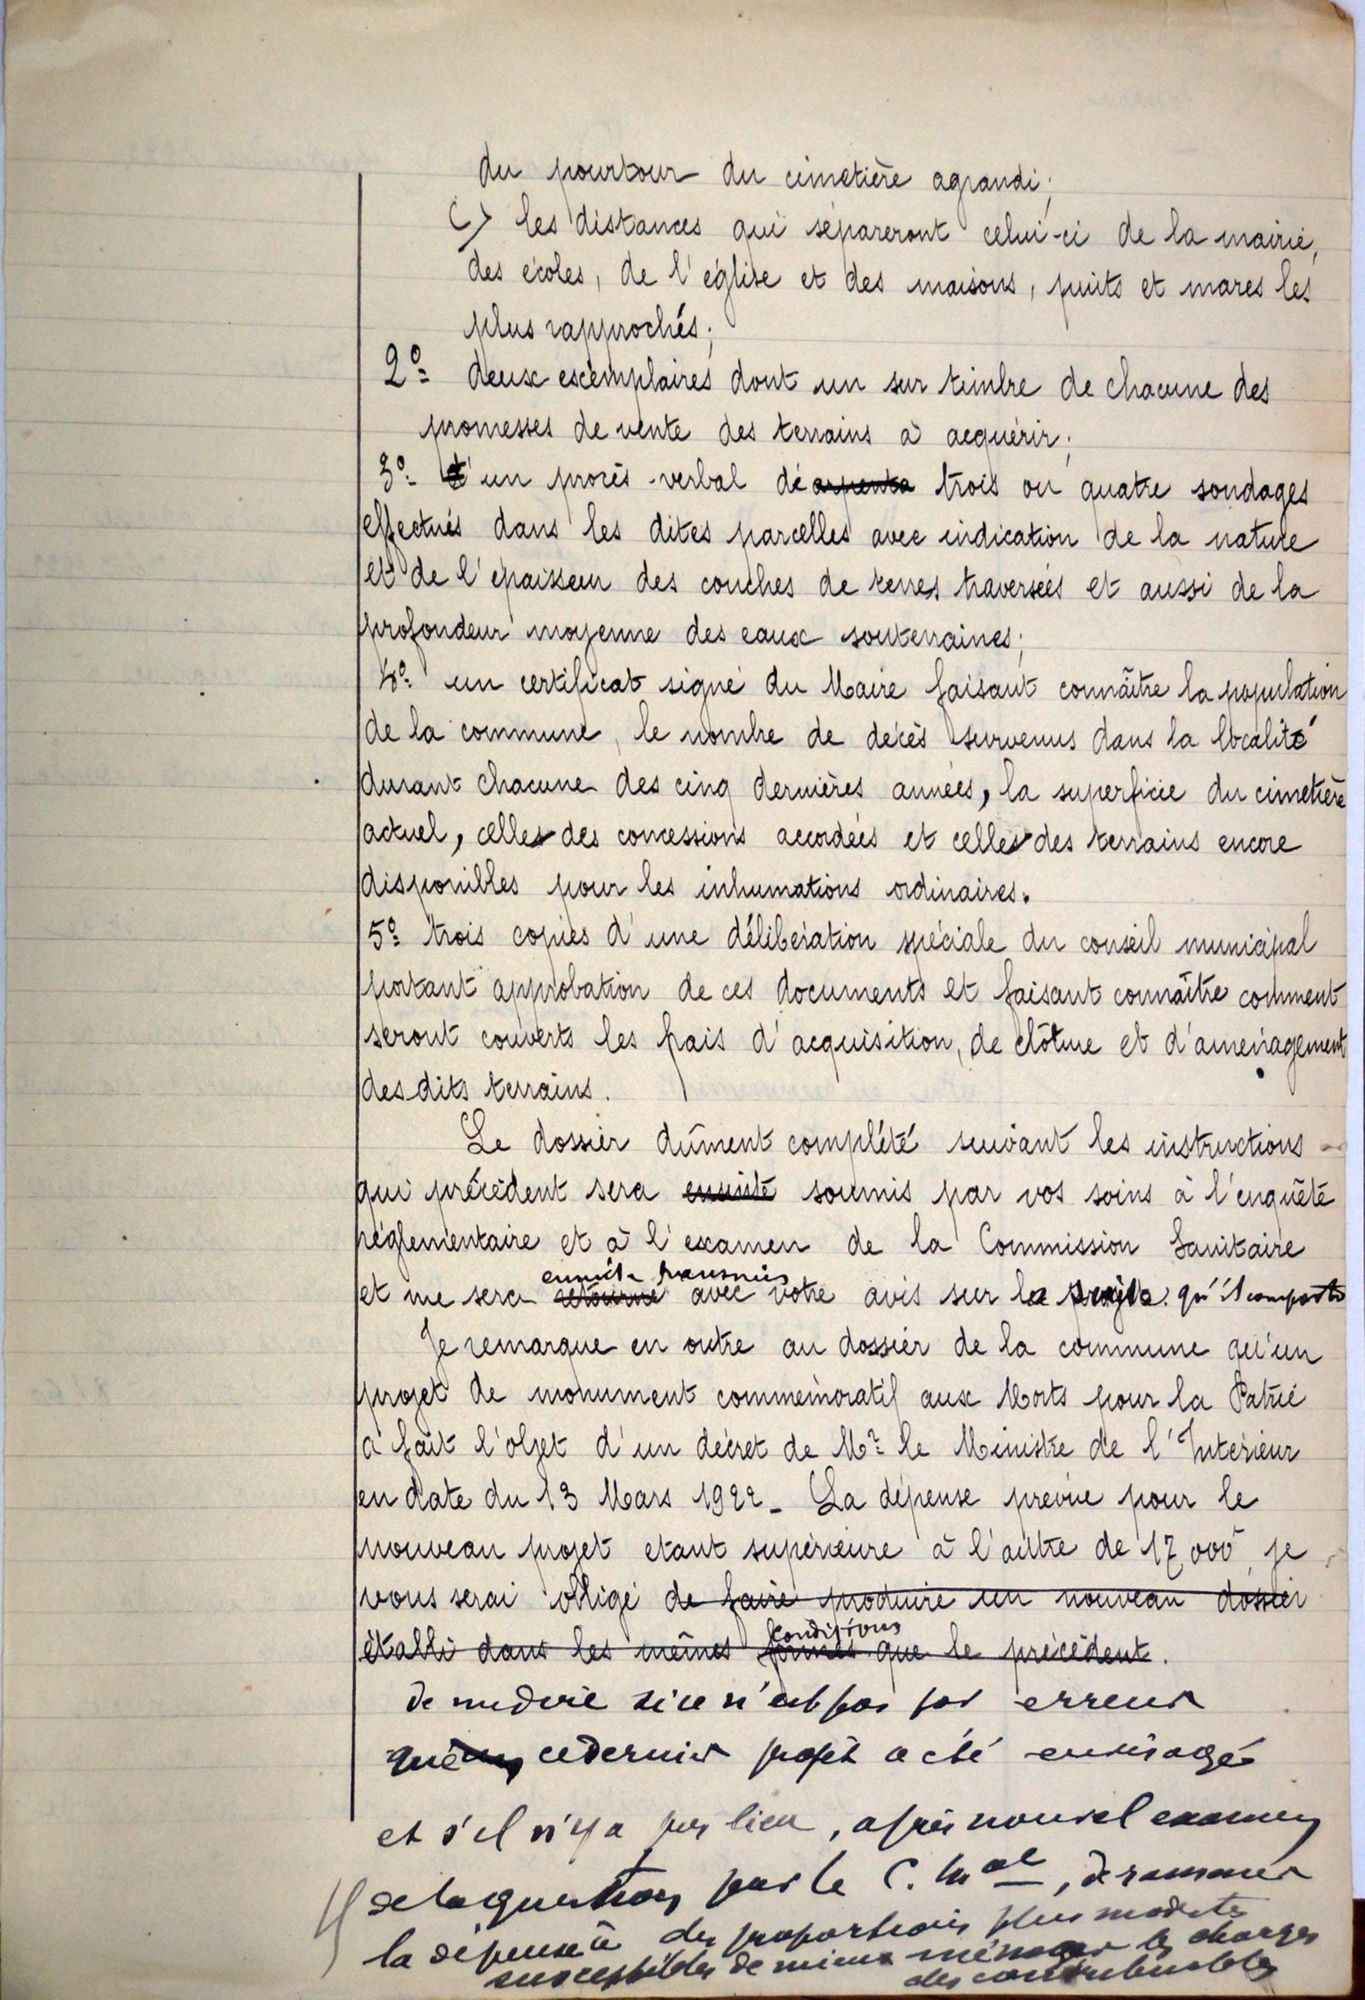 du pourtour du cimetière agrandi;
C) les distances qui sépareront celui-ci de la mairie,
des écoles, de l'église et des maisons, puits et mares les
plus rapprochés;
2º deux exemplaires dont un sur timbre de chacune des
promesses de vente des terrains à acquérir;
3º un procès-verbal de arpenta trois ou quatre sondages
effectués dans les dites parcelles avec indication de la nature
et de l'épaisseur des couches de terres traversées et aussi de la
profondeur moyenne des eaux souterraines;
4º un certificat signé du Maire faisant connaître la population
de la commune, le nombre de décès survenus dans la localité
durant chacune des cinq dernières années, la superficie du cimetière
actuel, celles des concessions accordées et celles des terrains encore
disponibles pour les inhumations ordinaires.
5º trois copies d'une délibération spéciale du conseil municipal
portant approbation de ces documents et faisant connaître comment
seront couverts les frais d'acquisition, de clôture et d'aménagement
des dits terrains.
Le dossier dûment complété suivant les instructions
qui précèdent sera ensuite soumis par vos soins à l'enquête
réglementaire et à l'examen de la Commission Sanitaire
ensuite transmis
et me sera retourné avec votre avis sur le projet qu'il comporte
Je remarque en outre au dossier de la commune qu'un
projet de monument commémoratif aux Morts pour la Patrie
a fait l'objet d'un décret de Mr le Ministre de l'Intérieur
en date du 13 Mars 1922 - La dépense prévue pour le
nouveau projet étant supérieure à l'autre de 17 000f je
vous serai obligé de faire produire un nouveau dossier
conditions
établi dans les mêmes formes que le précédent.
de me dire si ce n'est pas par erreur
que ce dernier projet a été envisagé
et s'il n'y a pas lieu, après nouvel examen
de la question par le C. Mal, de ramener
la dépense à des proportions plus modestes
susceptibles de mieux ménager les charges
des contribuables